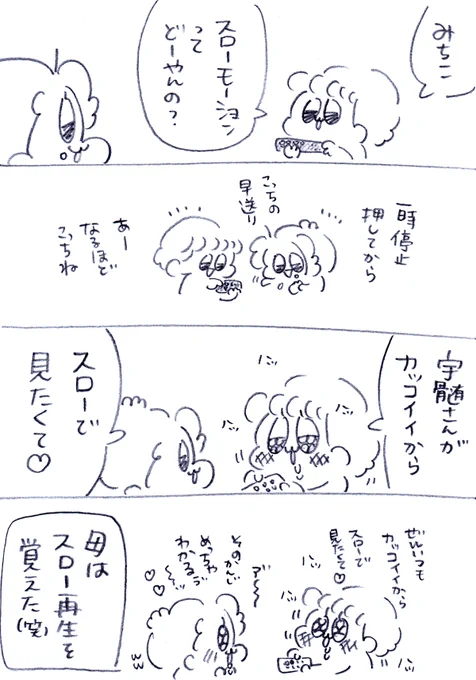 みちこ
スローモーション
って
どーやんの？
一時停止
押してから
こっちの
早送り
あー
なるほど
こっちね
宇髄さんが
カッコイイから
スローで
見たくて♡
ぜんいつも
カッコイイから
スローで
見たくて♡
ア〜〜
そのかんじ
めっちゃ
わかるぅ〜〜
母は
スロー再生を
覚えた(笑)